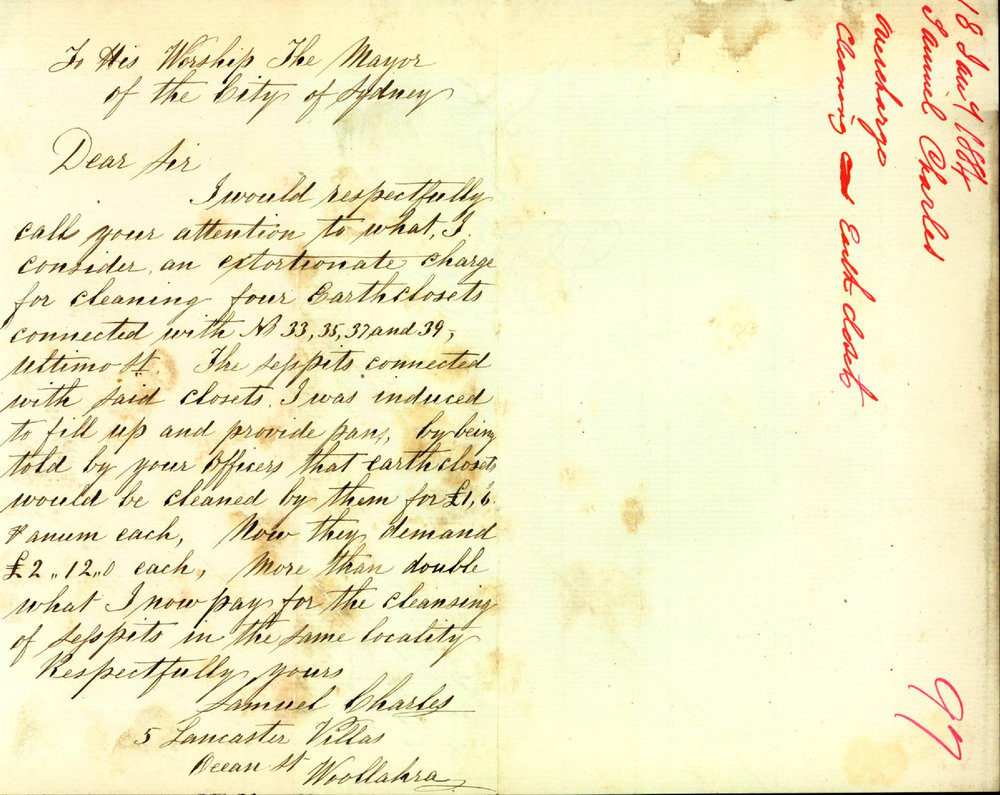 To His Worship The Mayor
of the City of Sydney
Dear Sir
I would respectfully
call your attention to what, I
consider, an extortionate charge
for cleaning four Earthclosets
connected with No 33, 35, 37 and 39,
Ultimo St. The sesspits connected
with said closets, I was induced
to fill up and provide pans, by being
told by your officers that earthclosets
would be cleaned by them for £1, 6
⅌ anum each, Now they demand
£2 „ 12 „ 0 each, More than double
what I now pay for the cleansing
of sesspits in the same locality
Respectfully yours
Samuel Charles
5 Lancaster Villas
Ocean St Woollahra
18 Jany 1884
Samuel Charles
Overcharge
Cleaning Earth closet
97